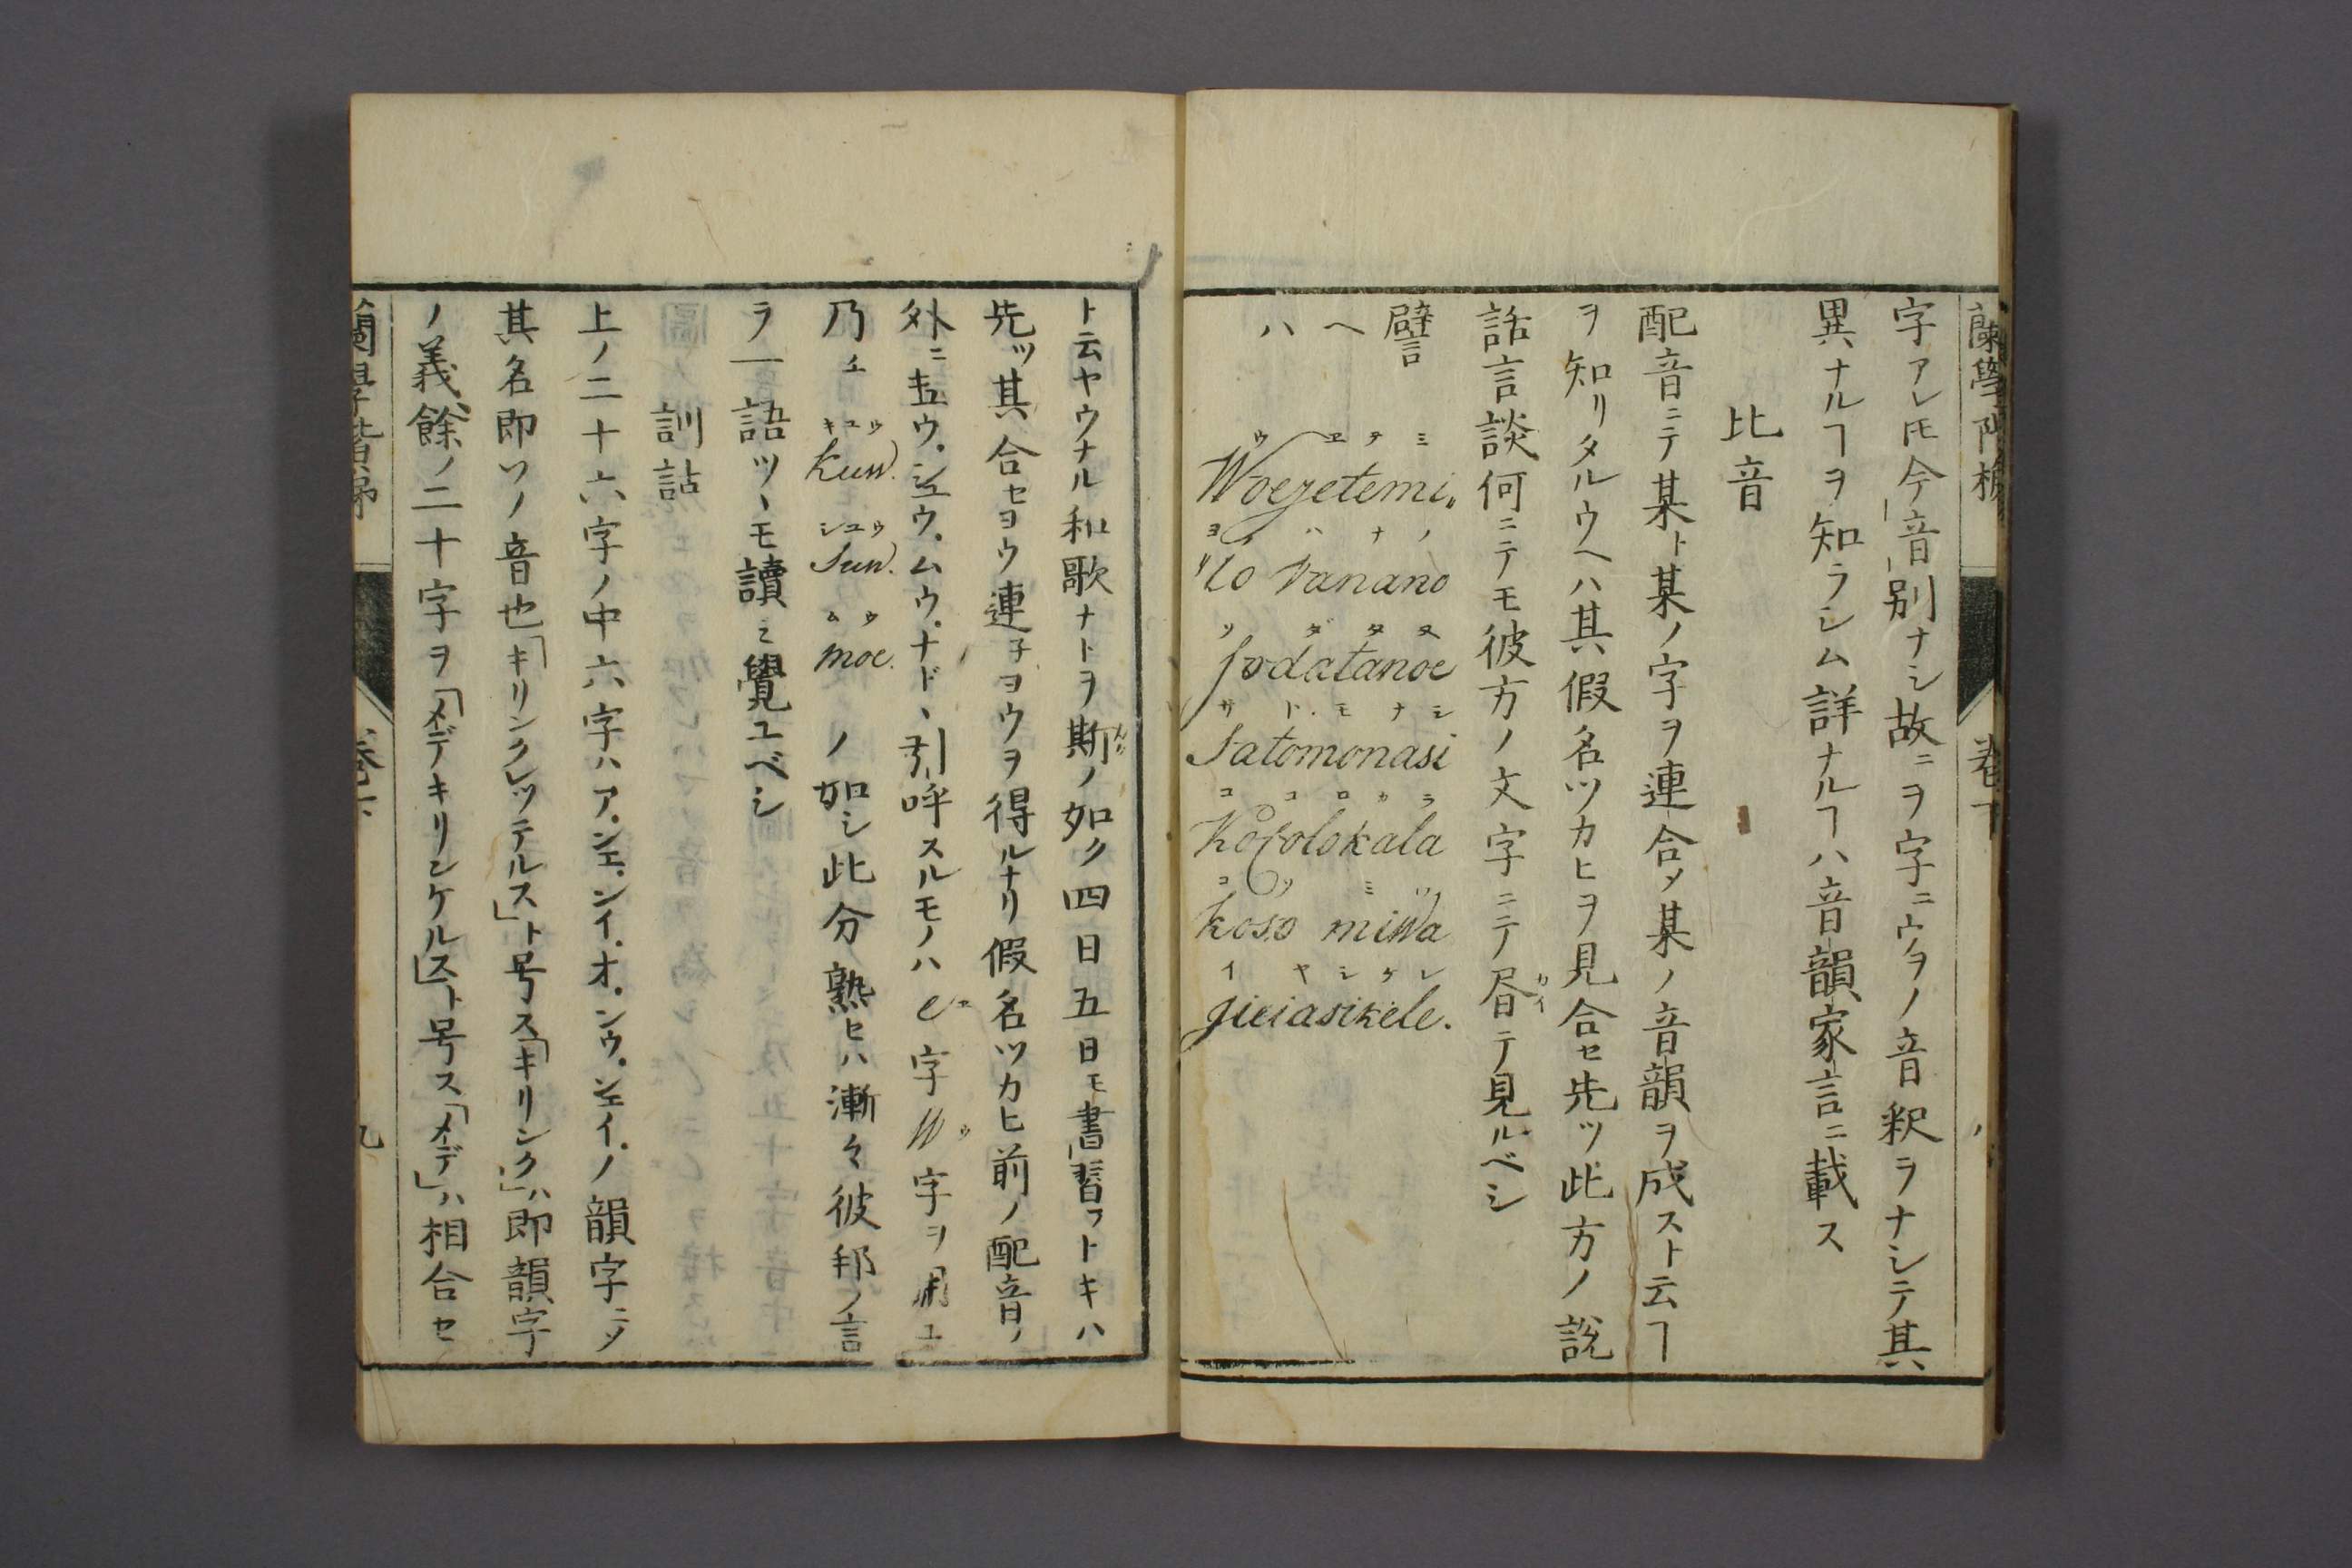 蘭學階梯 卷下
字アレ𪜈今「音」別ナシ故ニヲ字ニウヲノ音釈ヲナシテ其
異ナルヿヲ知ラシム詳ナルヿハ音韻家言ニ載ス
比音
配音ニテ某ト某ノ字ヲ連合メ某ノ音韻ヲ成スト云ヿ
ヲ知リタルウヘハ其假名ツカヒヲ見合セ先ツ此方ノ說
話言談何ニテモ彼方ノ文字ニテ昼テ見ルベシ
譬ヘハ
ウヱテミ
Woejetemi,,
ヨ バナノ
,,Jo vanano
ソダタヌ
sodatanoe
サトモナシ
Satomonasi
ココロカラ
Kocolokala
コソ ミハ
koso miwa
イヤシケレ
jieiasikele.
ト云ヤウナル和歌ナトヲ斯ノ如ク四日五日モ書習フトキハ
先ツ其合セヨウ連子ヨウヲ得ルナリ假名ツカヒ前ノ配音ノ
外ニキユウ.シユウ.ムウ.ナド、引呼スルモノハe字W字ヲ用ユ
乃チ
キユウ
kuw.
シユウ
suw.
ムウ
moe.
ノ如シ此分熟セハ漸々彼邦ノ言
ラ一語ツヽモ讀ミ覺ユベシ
訓詁
上ノ二十六字ノ中六字ハア.ンエ.ンイ.オ.ンウ.ンエイ.ノ韻字ニメ
其名即ツノ音也「キリンクレッテルス」ト号ス「キリンク」ハ即韻字
ノ義餘ノ二十字ヲ「メデキリンケルス」ト号ス「メデ」ハ相合セ
蘭學階梯 卷下 九